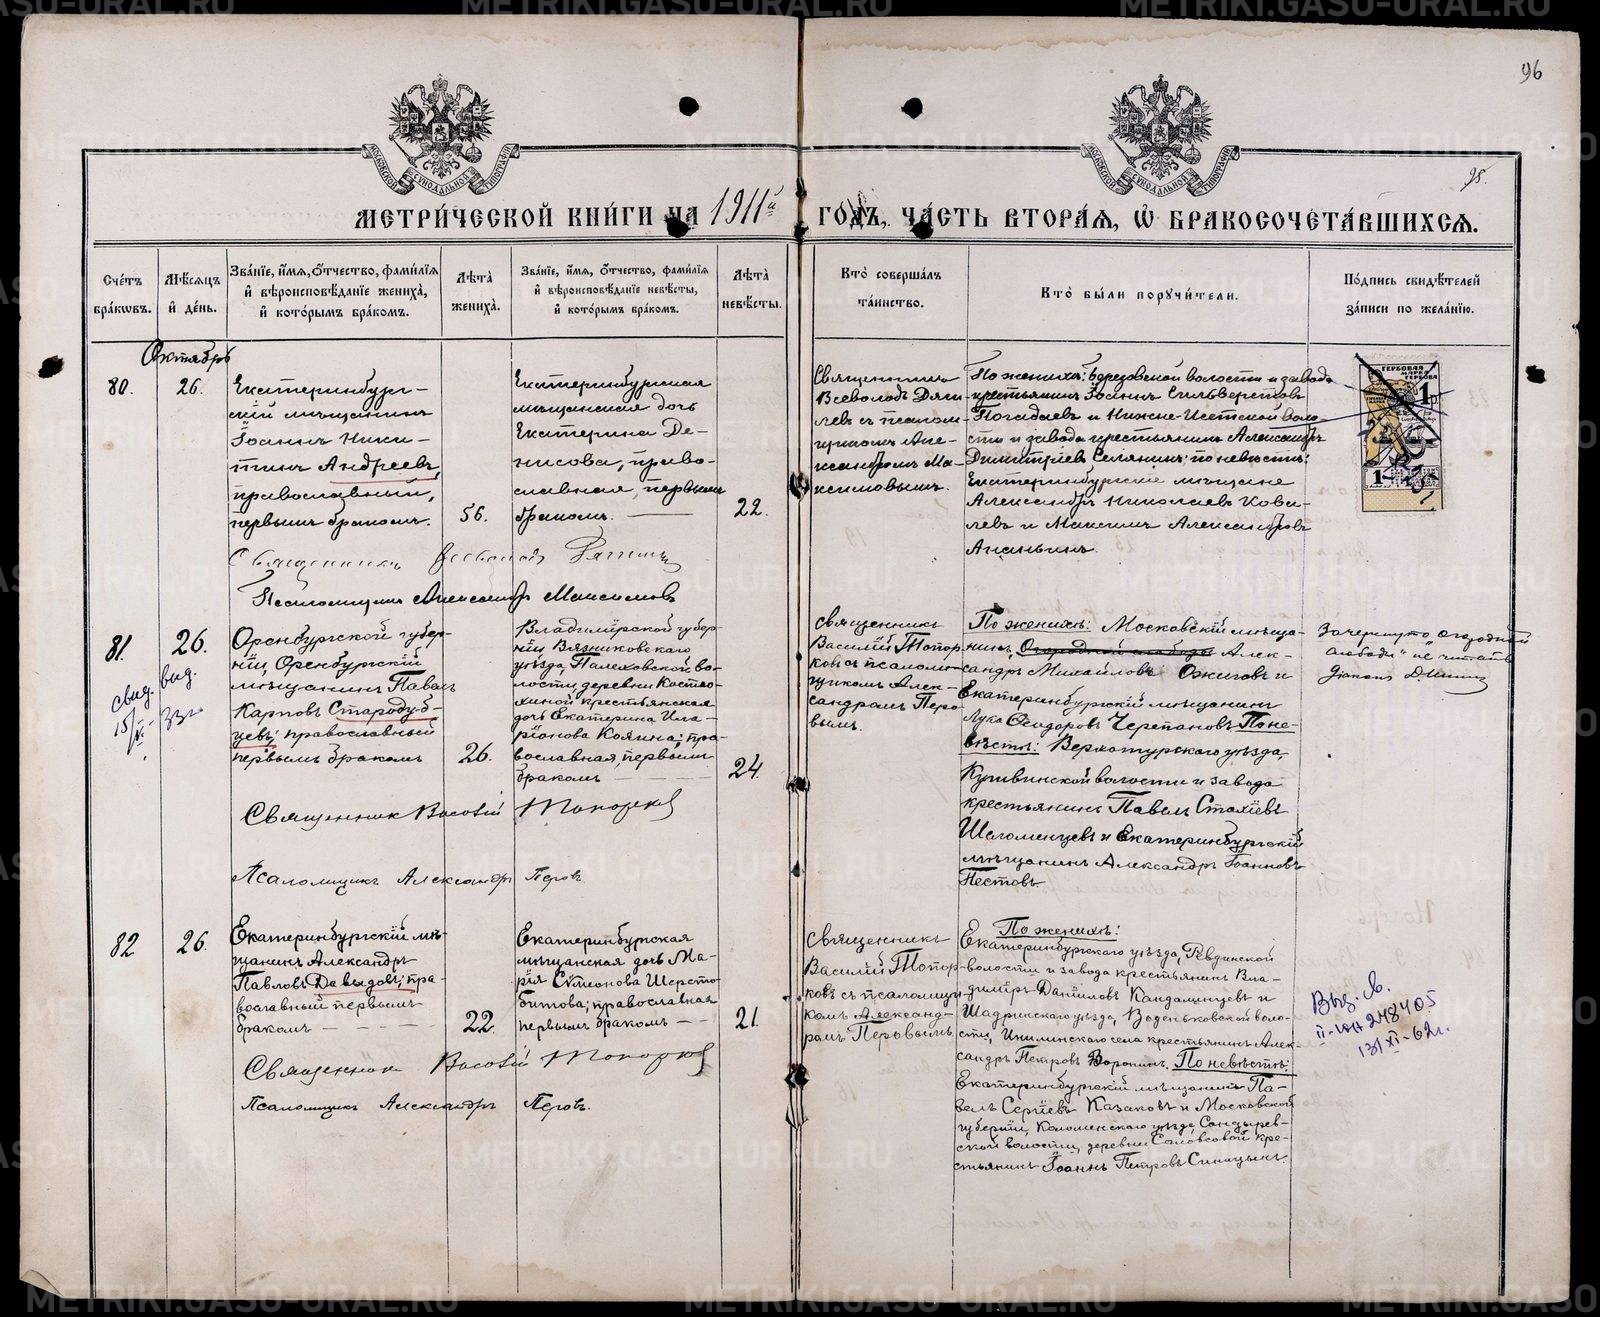 96
95.
МЕТРИ́ЧЕСКОЙ КНИ́ГИ НА 1911й ГО́ДЪ, ЧА́СТЬ ВТОРА́Я, Ѡ҆ БРАКОСОЧЕТА́ВШИХСѦ.
Сче́тъ бра́кѡвъ.
Мѣ́сяцъ и҆ де́нь.
Зва́нїе, и҆́мя, ѻ҆́тчество, фами́лїя и҆ вѣроисповѣ́данїе жениха̀, и҆ кото́рымъ бра́комъ.
Лѣ́та жениха̀.
Зва́нїе, и҆́мя, ѻ҆́тчество, фами́лїя и҆ вѣроисповѣ́данїе невѣ́сты, и҆ кото́рымъ бра́комъ.
Лѣ́та невѣ́сты.
Кто̀ соверша́лъ та́инство.
Кто̀ бы́ли поручи́тели.
По́дпись свидѣ́телей за́писи по жела́нїю.
Октябрь
80.
26.
Екатеринбург-
скій мѣщанинъ
Іоаннъ Ники-
тинъ Андреевъ,
православный,
первымъ бракомъ.
56.
Екатеринбургская
мѣщанская дочь
Екатерина Де-
нисова, право-
славная, первымъ
бракомъ.
22.
Священникъ
Всеволодъ Дяги-
левъ съ псалом-
щикомъ Але-
ксандромъ Ма-
ксимовымъ.
По женихѣ: Березовской волости и завода
крестьянинъ Іоаннъ Сильверстовъ
Погадаевъ и Нижне-Исетской воло-
сти и завода крестьянинъ Александръ
Димитріевъ Селянинъ; по невѣстѣ:
Екатеринбургскіе мѣщане
Александръ Николаевъ Кова-
левъ и Максимъ Александровъ
Ананьинъ
ГЕРБОВАЯ
МАРКА
1 р
1
Священникъ Всеволодъ Дягилевъ
Псаломщикъ Александръ Максимовъ
81.
26.
свид. выд.
15/
33г
Оренбургской губер-
ніи, Оренбургскій
мѣщанинъ Павелъ
Карповъ Стародуб-
цевъ; православный
первымъ бракомъ
26.
Владимірской губер-
ніи Вязниковскаго
уѣзда, Палеховской во-
лости, деревни Костю-
хиной крестьянская
дочь Екатерина Ила-
ріонова Коянина; пра-
вославная, первымъ
бракомъ
24.
Священникъ
Василій Топор-
ковъ съ псалом-
щикомъ Алек-
сандромъ Перо-
вымъ.
По женихѣ: Московскій мѣща-
нинъ, Огородной слободы Алек-
сандръ Михайловъ Ожиговъ и
Екатеринбургскій мѣщанинъ
Лука Ѳеодоровъ Черепановъ По не-
вѣстѣ: Верхотурскаго уѣзда,
Кушвинской волости и завода
крестьянинъ Павелъ Стахіевъ
Шеломенцевъ и Екатеринбургскій
мѣщанинъ Александръ Іоанновъ
Пестовъ.
Зачеркнуто „огородной
слободы" не читать
Священникъ Василій Топорковъ
Псаломщикъ Александръ Перовъ
82
26.
Екатеринбургскій мѣ-
щанинъ Александръ
Павловъ Давыдовъ; пра-
вославный первымъ
бракомъ
22.
Екатеринбургская
мѣщанская дочь Ма-
рія Сѵмеонова Шерсто-
битова; православная
первымъ бракомъ
21.
Священникъ
Василій Топор-
ковъ съ псаломщи-
комъ Александ-
ромъ Перовымъ
По женихѣ:
Екатеринбургскаго уѣзда, Ревдинской
волости и завода крестьянинъ Вла-
диміръ Даніиловъ Кандалинцевъ и
Шадринскаго уѣзда, Воденьковской воло-
сти, крестьянинъ Алек-
сандръ Петровъ Воронинъ. По невѣстѣ:
Екатеринбургскій мѣщанинъ Па-
велъ Сергіевъ Казаковъ и Московской
губерніи, Коломенскаго уѣзда, Сандырев-
ской волости, деревни кре-
стьянинъ Іоаннъ Петровъ Синицынъ.
Выд. св.
II-ЮН 248405
13/XI-62г.
Священникъ Василій Топорковъ
Псаломщикъ Александръ Перовъ.
METRIKI.GASO-URAL.RU